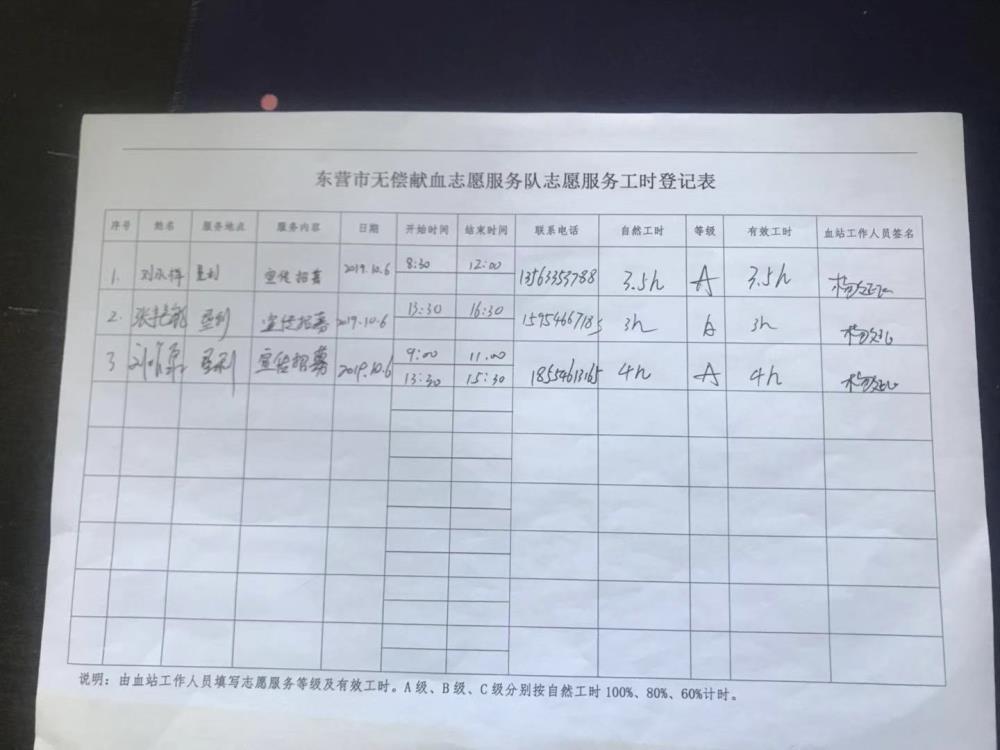 东营市无偿献血志愿服务队志愿服务工时登记表
序号 姓名 服务地点 服务内容 日期 开始时间 结束时间 联系电话 自然工时 等级 有效工时 血站工作人员签名
1. 刘永祥 垦利 宣传招募 2019.10.6 8:30 12:00 13563353788 3.5h A 3.5h
2. 垦利 宣传招募 2019.10.6 13:30 16:30 15954667185 3h A 3h
3 垦利 宣传招募 2019.10.6 9:00 11.00 18554613165 4h A 4h
13:30 15:30
说明：由血站工作人员填写志愿服务等级及有效工时。A级、B级、C级分别按自然工时100%、80%、60%计时。